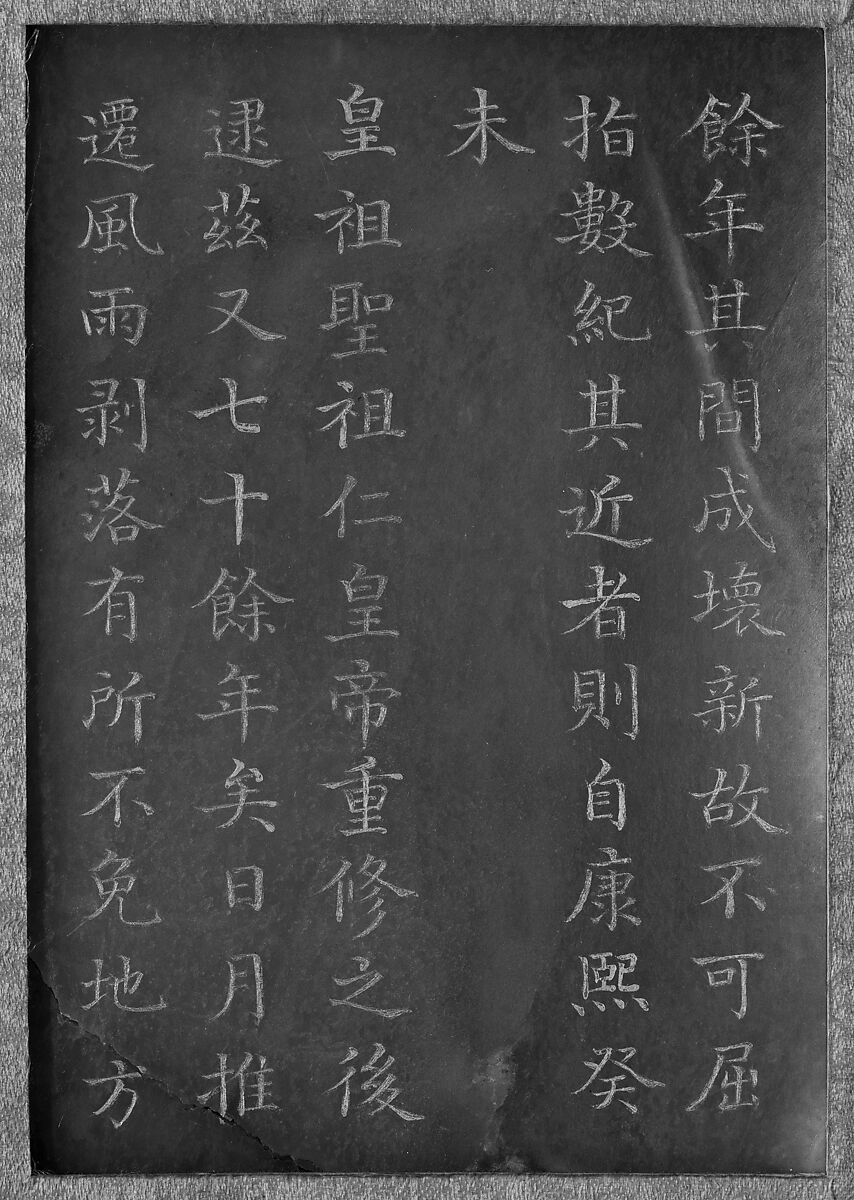 餘年其間成壞新故不可屈
指數紀其近者則自康熙癸
未
皇祖聖祖仁皇帝重修之後
逮茲又七十餘年矣日月推
遷風雨剥落有所不免地方